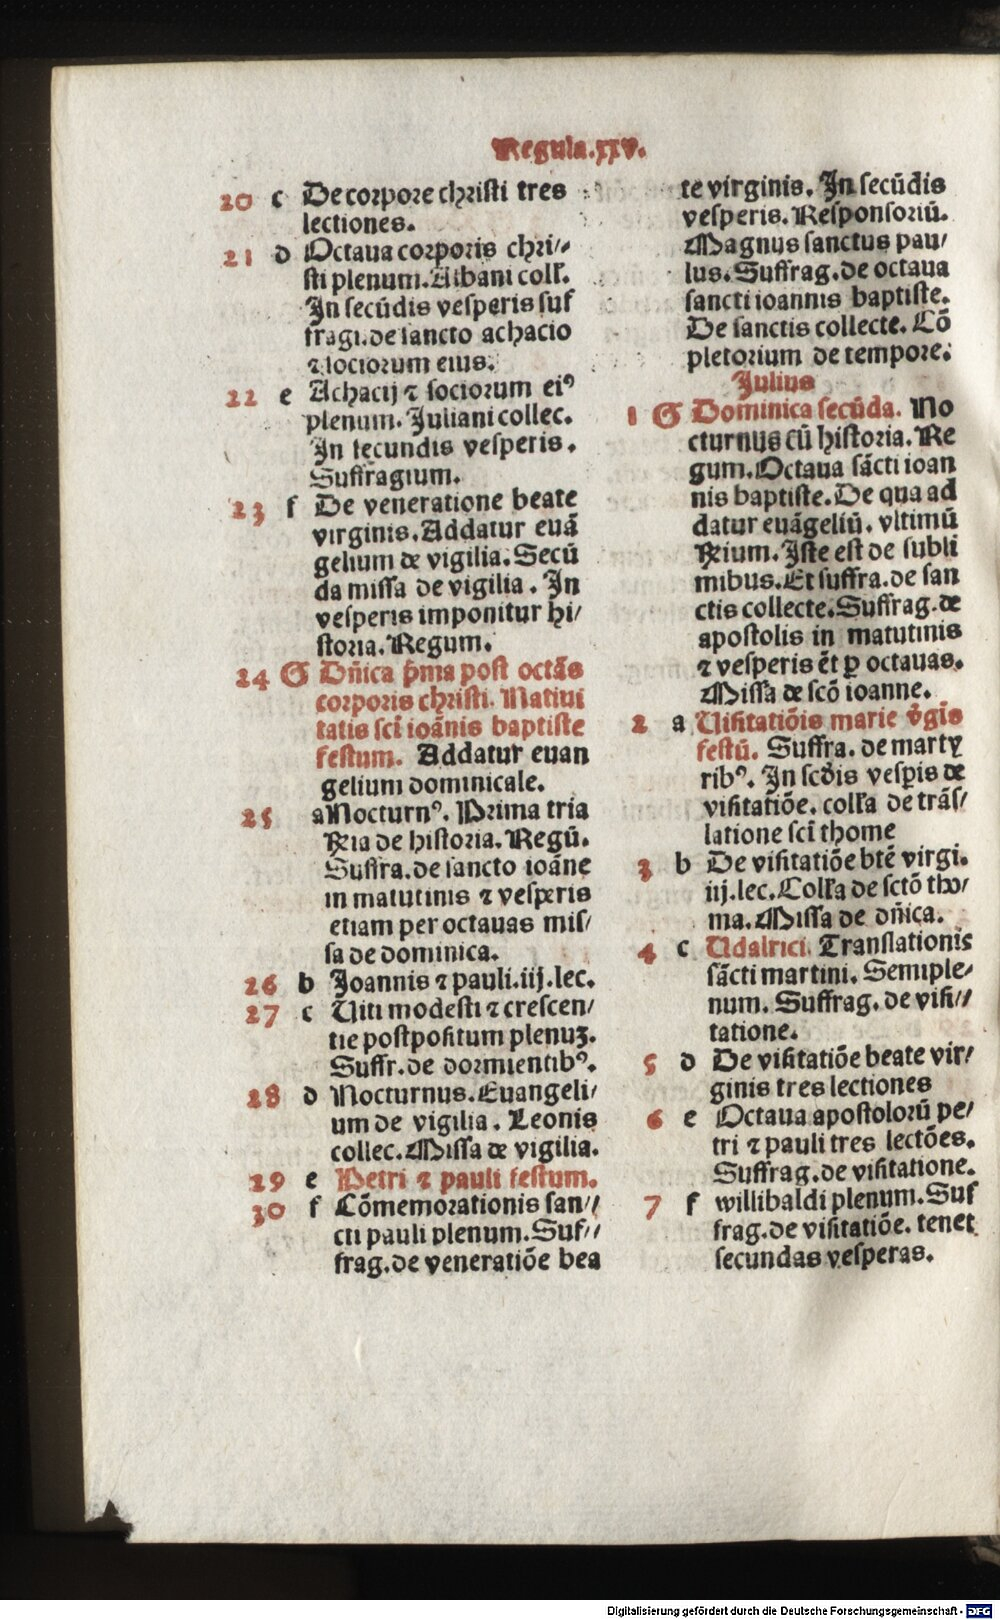 Regula.xxv.
20 c De corpore christi tres
lectiones.
21 d Octaua corporis chri//
sti plenum. Albani coll̄.
In secūdis vesperis suf
fragi. de sancto achacio
⁊ sociorum eius.
22 e Achacij ⁊ sociorum eiꝰ
plenum. Juliani collec.
In secundis vesperis.
Suffragium.
23 f De veneratione beate
virginis. Addatur euā
gelium de vigilia. Secū
da missa de vigilia. In
vesperis imponitur hi/
storia. Regum.
24 G Dn̄ica p̄ma post octās
corporis christi. Natiui
tatis scī ioānis baptiste
festum. Addatur euan
gelium dominicale.
25 a Nocturnꝰ. Prima tria
R̄ria de historia. Regū.
Suffra. de sancto ioāne
in matutinis ⁊ vesperis
etiam per octauas mis/
sa de dominica.
26 b Joannis ⁊ pauli. iij. lec.
27 c Uiti modesti ⁊ crescen/
tie postpositum plenuʒ.
Suffr. de dormientibꝰ.
28 d Nocturnus. Euangeli/
um de vigilia. Leonis
collec. Missa de vigilia.
29 e Petri ⁊ pauli festum.
30 f Cōmemorationis san//
cti pauli plenum. Suf//
frag. de veneratiōe bea
te virginis. In secūdis
vesperis. Responsoriū.
Magnus sanctus pau/
lus. Suffrag. de octaua
sancti ioannis baptiste.
De sanctis collecte. Cō
pletorium de tempore.
Julius
1 G Dominica secūda. No
cturnus cū historia. Re
gum. Octaua sācti ioan
nis baptiste. De qua ad
datur euāgeliū. vltimū
R̄rium. Iste est de subli
mibus. Et suffra. de san
ctis collecte. Suffrag. de
apostolis in matutinis
⁊ vesperis ēt ꝑ octauas.
Missa de scō ioanne.
2 a Uisitatiōis marie v̄gīs
festū. Suffra. de martꝝ
ribꝰ. In scd̄is vesꝑis de
visitatiōe. coll̄a de trās/
latione scī thome
3 b De visitatiōe btē virgi.
iij. lec. Coll̄a de sctō tho/
ma. Missa de dn̄ica.
4 c Udalrici. Translationis
sācti martini. Semiple/
num. Suffrag. de visi//
tatione.
5 d De visitatiōe beate vir/
ginis tres lectiones
6 e Octaua apostolorū pe/
tri ⁊ pauli tres lectōes.
Suffrag. de visitatione.
7 f willibaldi plenum. Suf
frag. de visitatiōe. tenet
secundas vesperas.
Digitalisierung gefördert durch die Deutsche Forschungsgemeinschaft - DFG